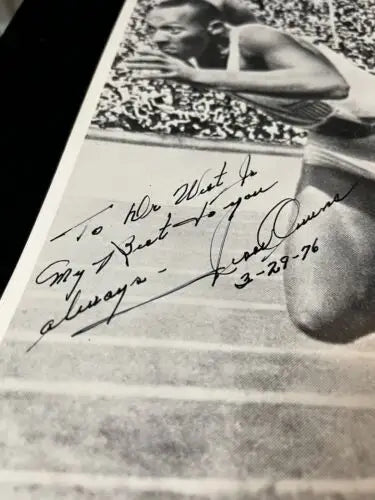 To Dr West Jr
My Best to you
always -
Jesse Owens
3-29-76